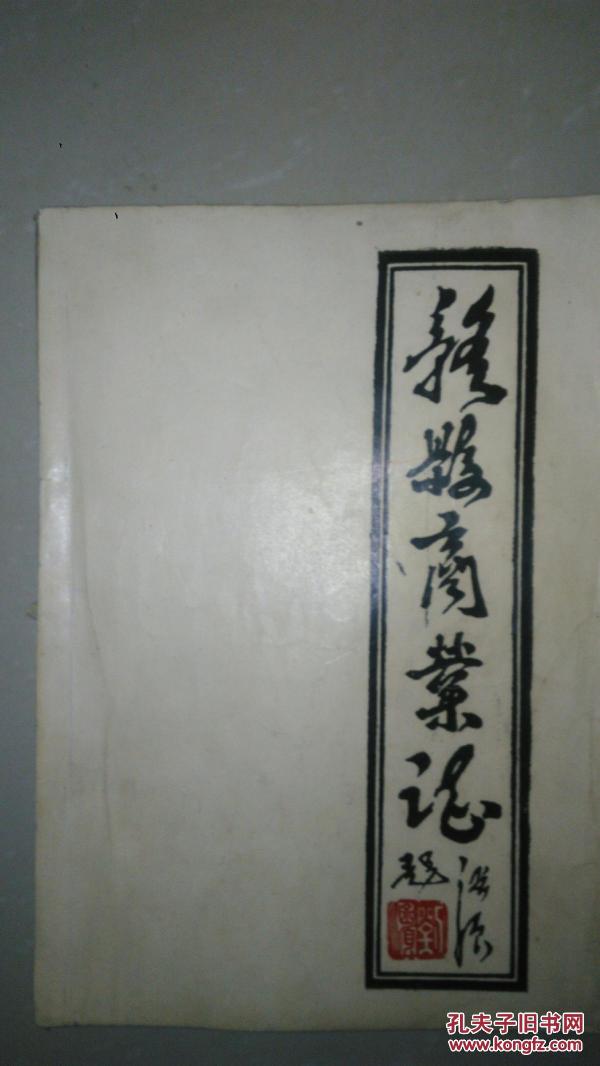 贛縣商業誌
孔夫子旧书网
www.kongfz.com